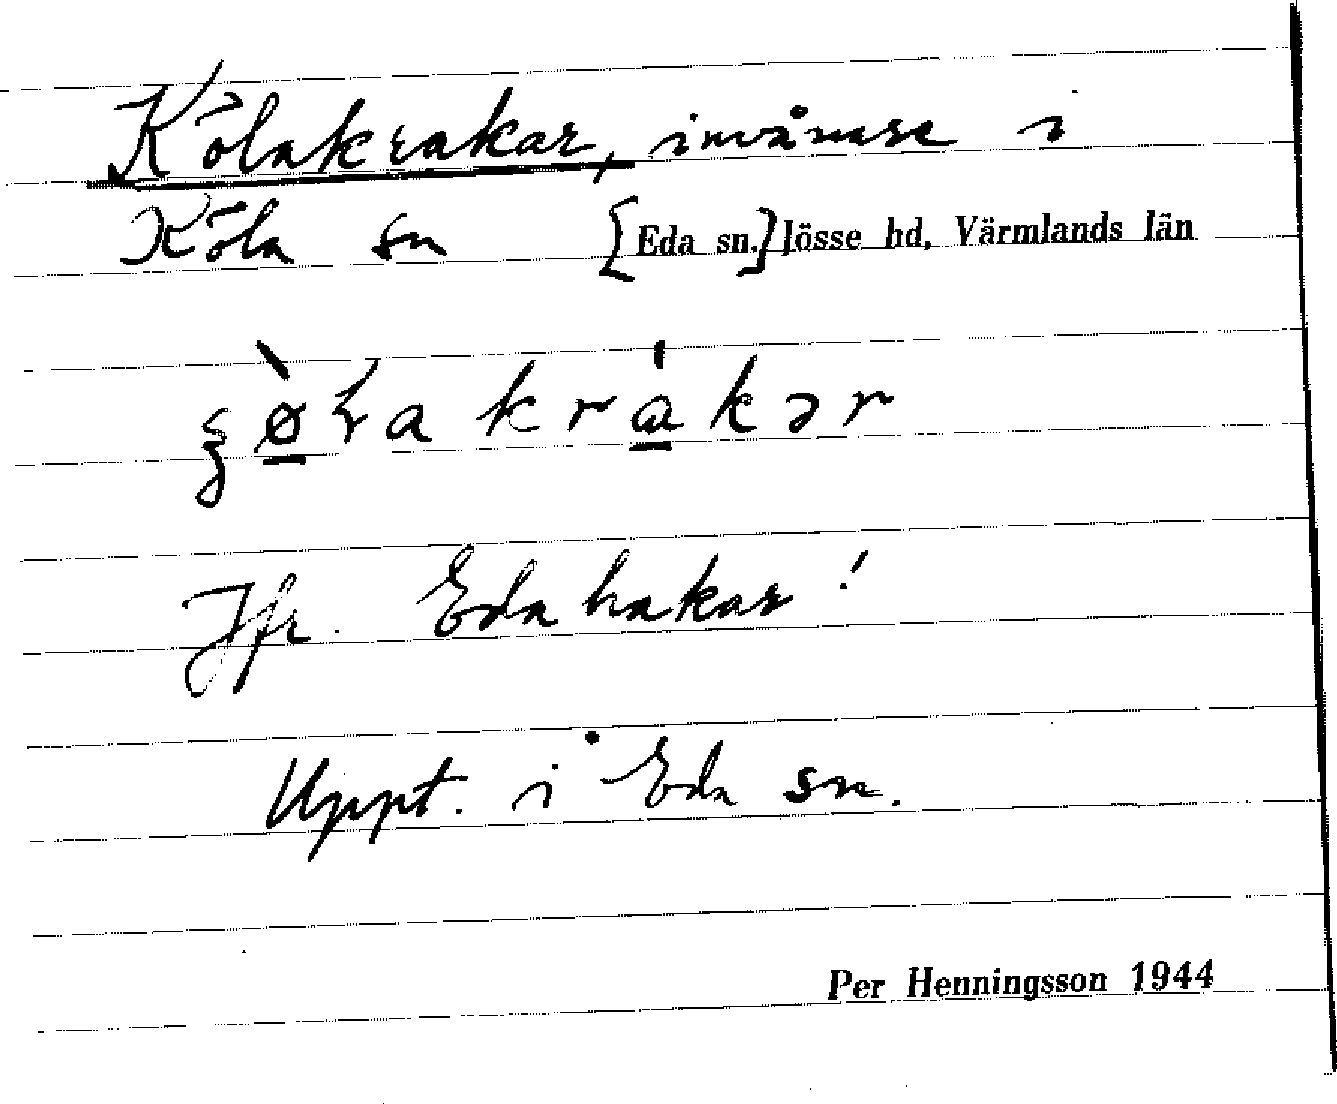 Kölakrakar, invånare i
Köla sn [Eda sn.] Jösse hd, Värmlands län
Jfr. Edahakar!
Uppt. i Eda sn.
Per Henningsson 1944